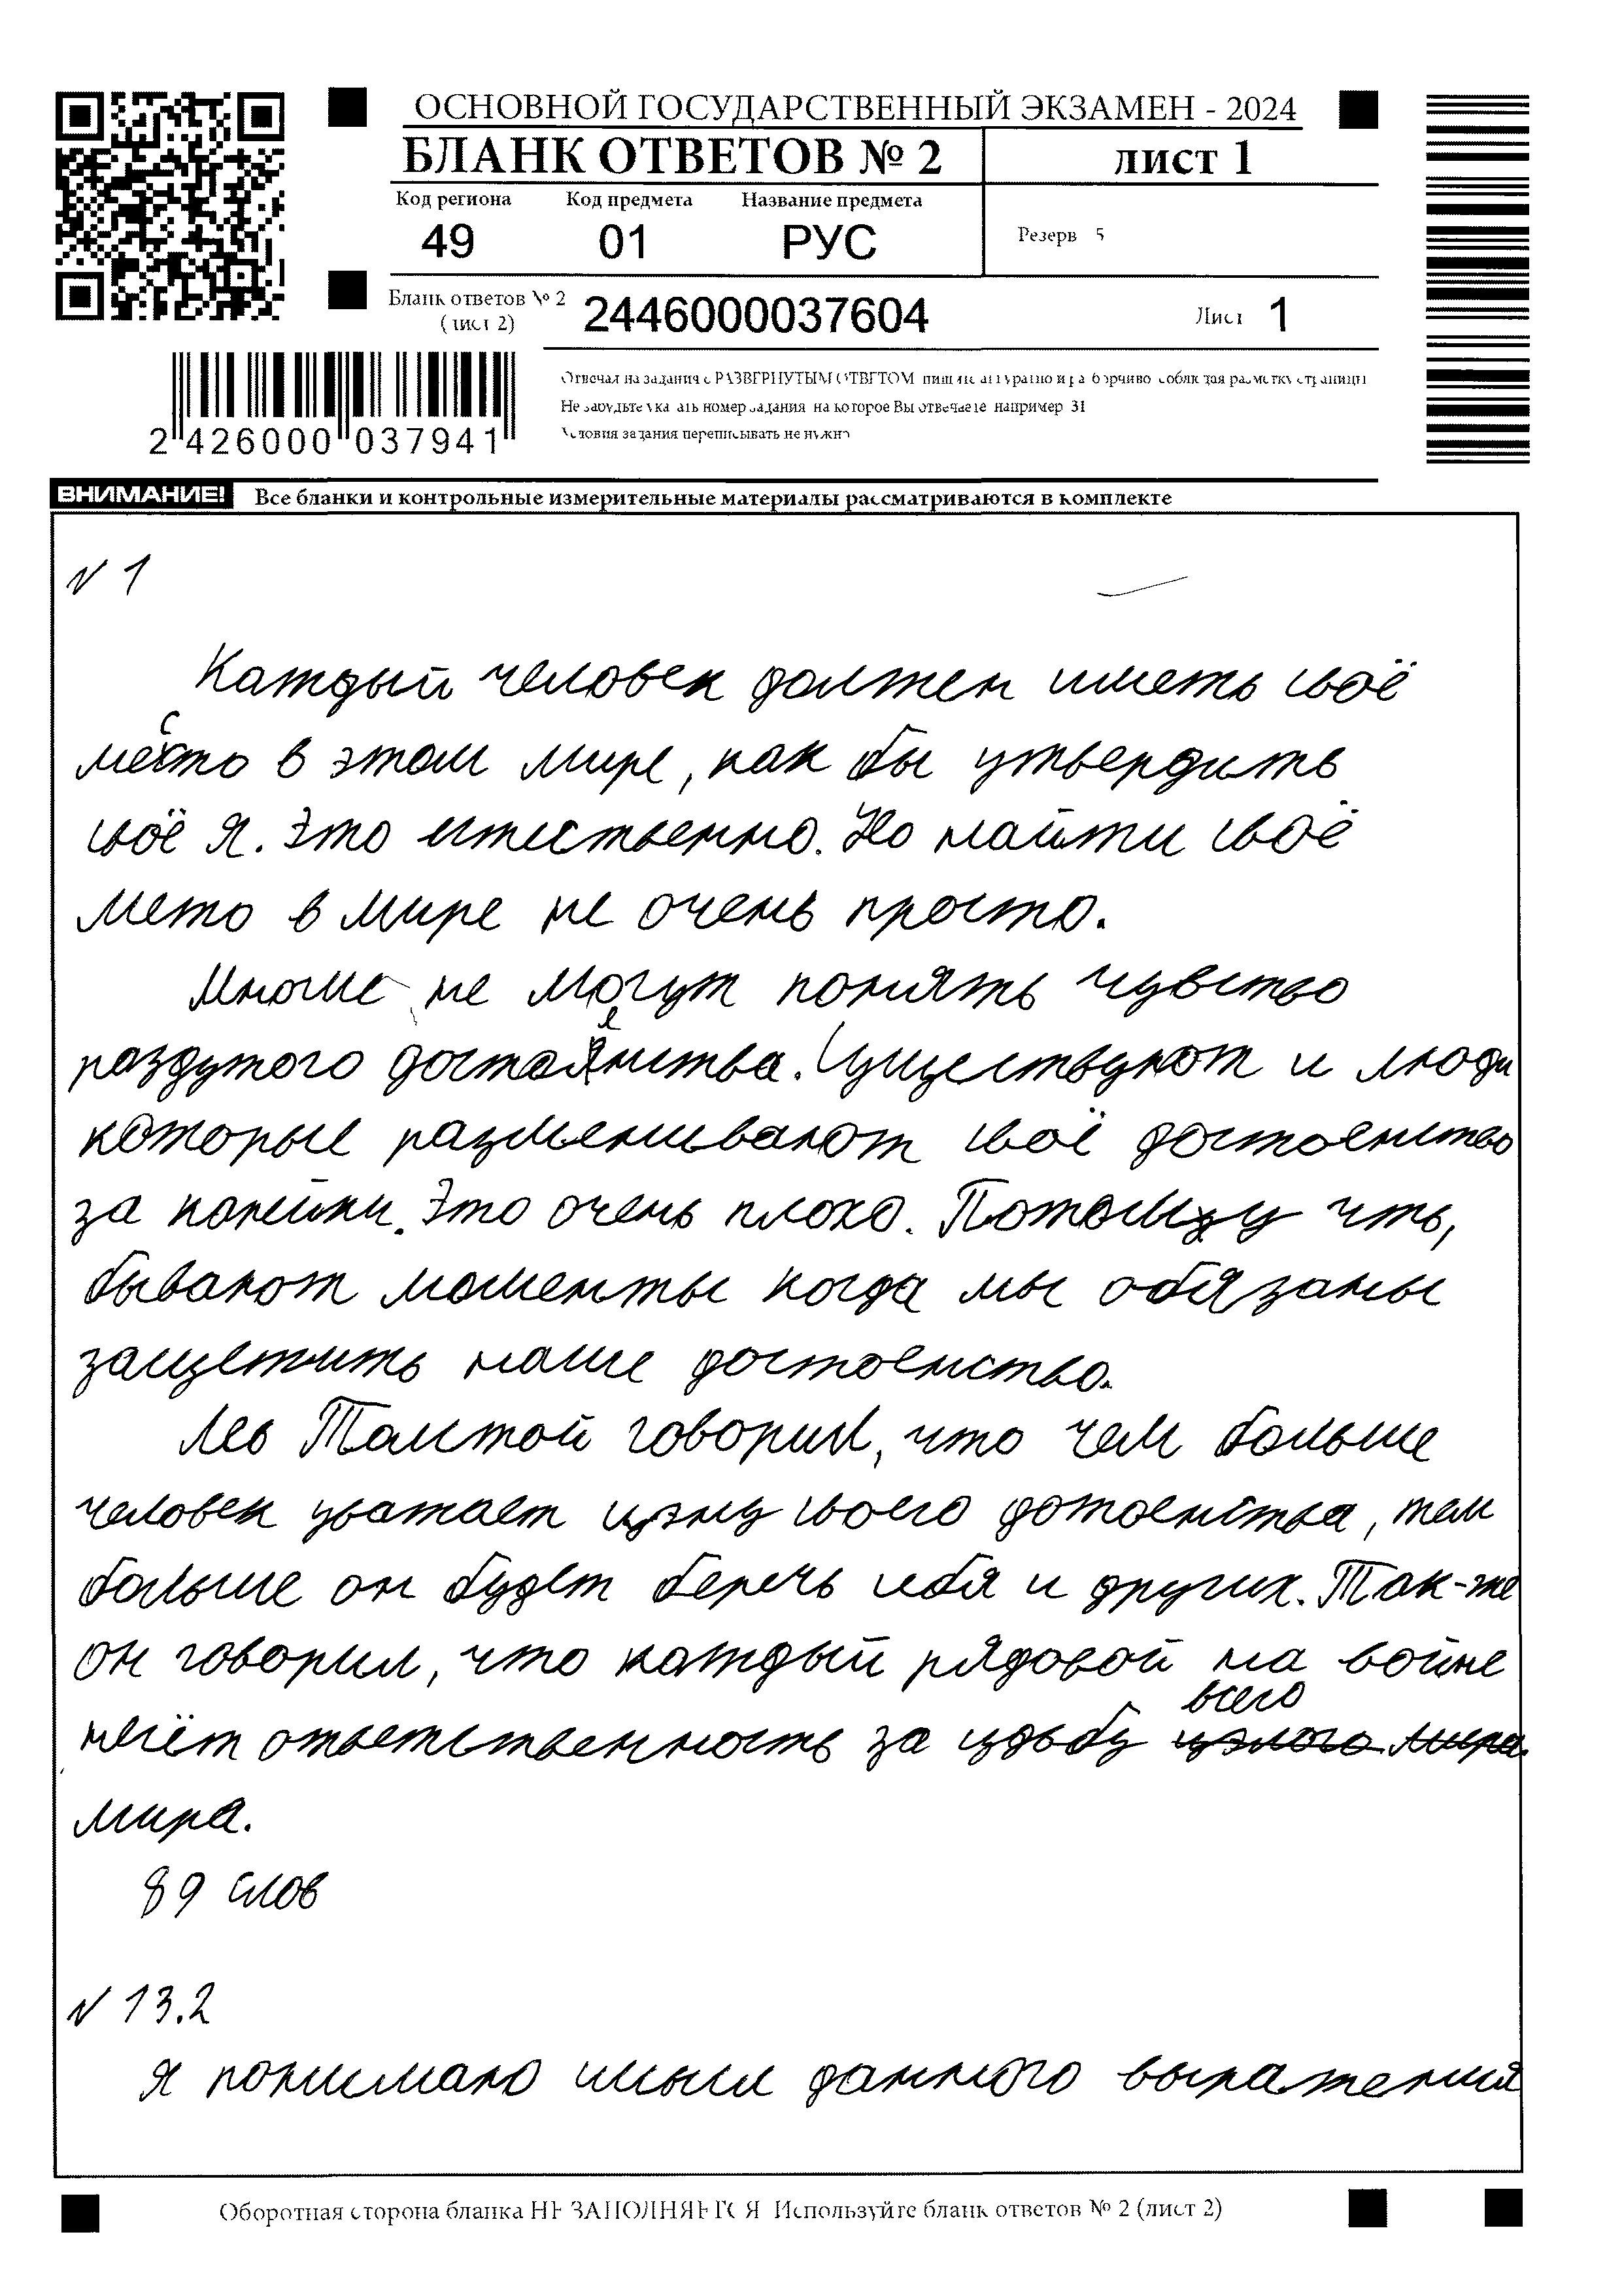 ОСНОВНОЙ ГОСУДАРСТВЕННЫЙ ЭКЗАМЕН - 2024
БЛАНК ОТВЕТОВ № 2
лист 1
Код региона Код предмета Название предмета
49 01 РУС
Резерв 5
Бланк ответов № 2
(лист 2)
2446000037604
Лист 1
2 426000 037941
Отвечая на задания с РАЗВЕРНУТЫМ ОТВЕТОМ пишите аккуратно и разборчиво соблюдая разметку страницы
Не забудьте указать номер задания на которое Вы отвечаете например 31
Условия задания переписывать не нужно
ВНИМАНИЕ! Все бланки и контрольные измерительные материалы рассматриваются в комплекте
N 1
Каждый человек должен иметь своё
место в этом мире, как бы утвердить
своё я. Это естественно. Но найти своё
место в мире не очень просто.
Многие не могут понять чувство
раздутого достоенства. Существуют и люди
которые разменивают своё достоенство
за копейки. Это очень плохо. Потому что,
бывают моменты когда мы обязаны
защетить наше достоенство.
Лев Толстой говорил, что чем больше
человек уважает цэну своего дотоенства, тем
больше он будет беречь себя и других. Так-же
он говорил, что каждый рядовой на войне
несёт ответственность за судьбу всего цэлого мира.
мира.
89 слов
N 13.2
Я понимаю смысл данного выражения
Оборотная сторона бланка НЕ ЗАПОЛНЯЕТСЯ Используйте бланк ответов № 2 (лист 2)